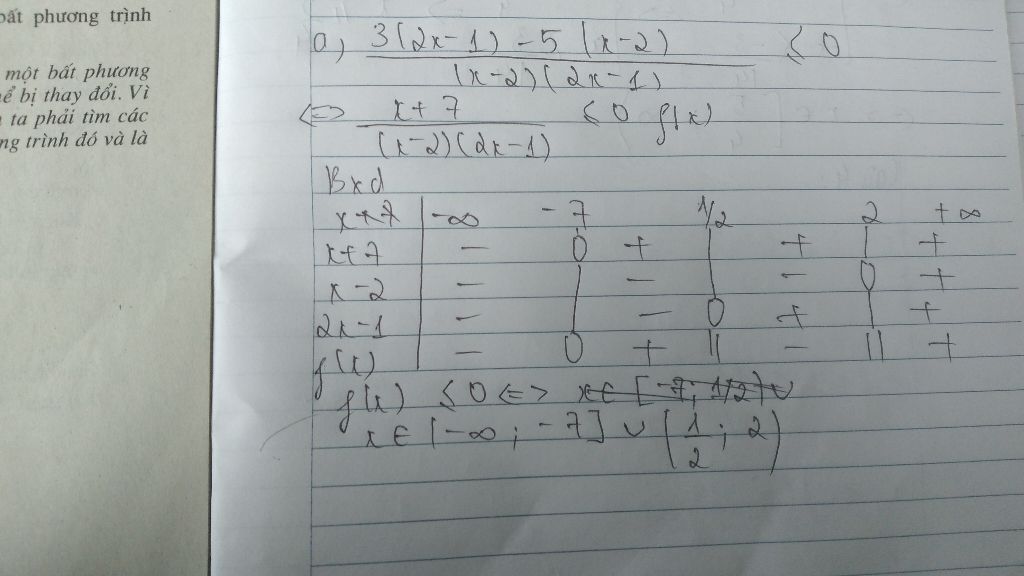 bất phương trình
một bất phương
ể bị thay đổi. Vì
ta phải tìm các
ng trình đó và là
a) 3(2x-1) - 5(x-2) / (x-2)(2x-1) ≤ 0
<=> x+7 / (x-2)(2x-1) ≤ 0 f(x)
Bxd
x+7 | -∞ -7 1/2 2 +∞
x+7 | - 0 + | + | +
x-2 | - | - | - 0 +
2x-1 | - | - 0 + | +
f(x) | - 0 + || - || +
f(x) ≤ 0 <=> x∈[-7; 1/2) ∪
x ∈ (-∞; -7] ∪ (1/2; 2)